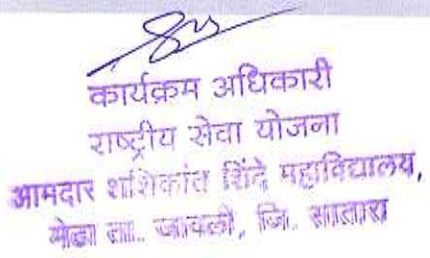 कार्यक्रम अधिकारी
राष्ट्रीय सेवा योजना
आमदार शशिकांत शिंदे महाविद्यालय,
मेढा ता.. जावली, जि. सातारा